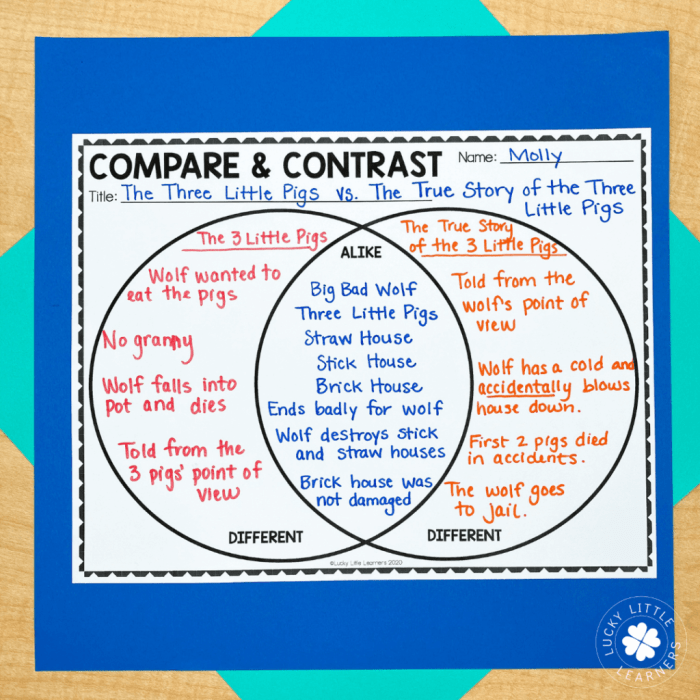 COMPARE & CONTRAST
Name: Molly
Title: The Three Little Pigs vs. The True Story of the Three
Little Pigs
The 3 Little Pigs
Wolf wanted to
eat the pigs
No granny
Wolf falls into
pot and dies
Told from the
3 pigs' point of
view
DIFFERENT
ALIKE
Big Bad Wolf
Three Little Pigs
Straw House
Stick House
Brick House
Ends badly for wolf
Wolf destroys stick
and straw houses
Brick house was
not damaged
The True Story
of the 3 Little Pigs
Told from the
wolf's point of
view
Wolf has a cold and
accidentally blows
house down.
First 2 pigs died
in accidents.
The wolf goes
to jail.
DIFFERENT
©Lucky Little Learners 2020
LUCKY LITTLE
LEARNERS